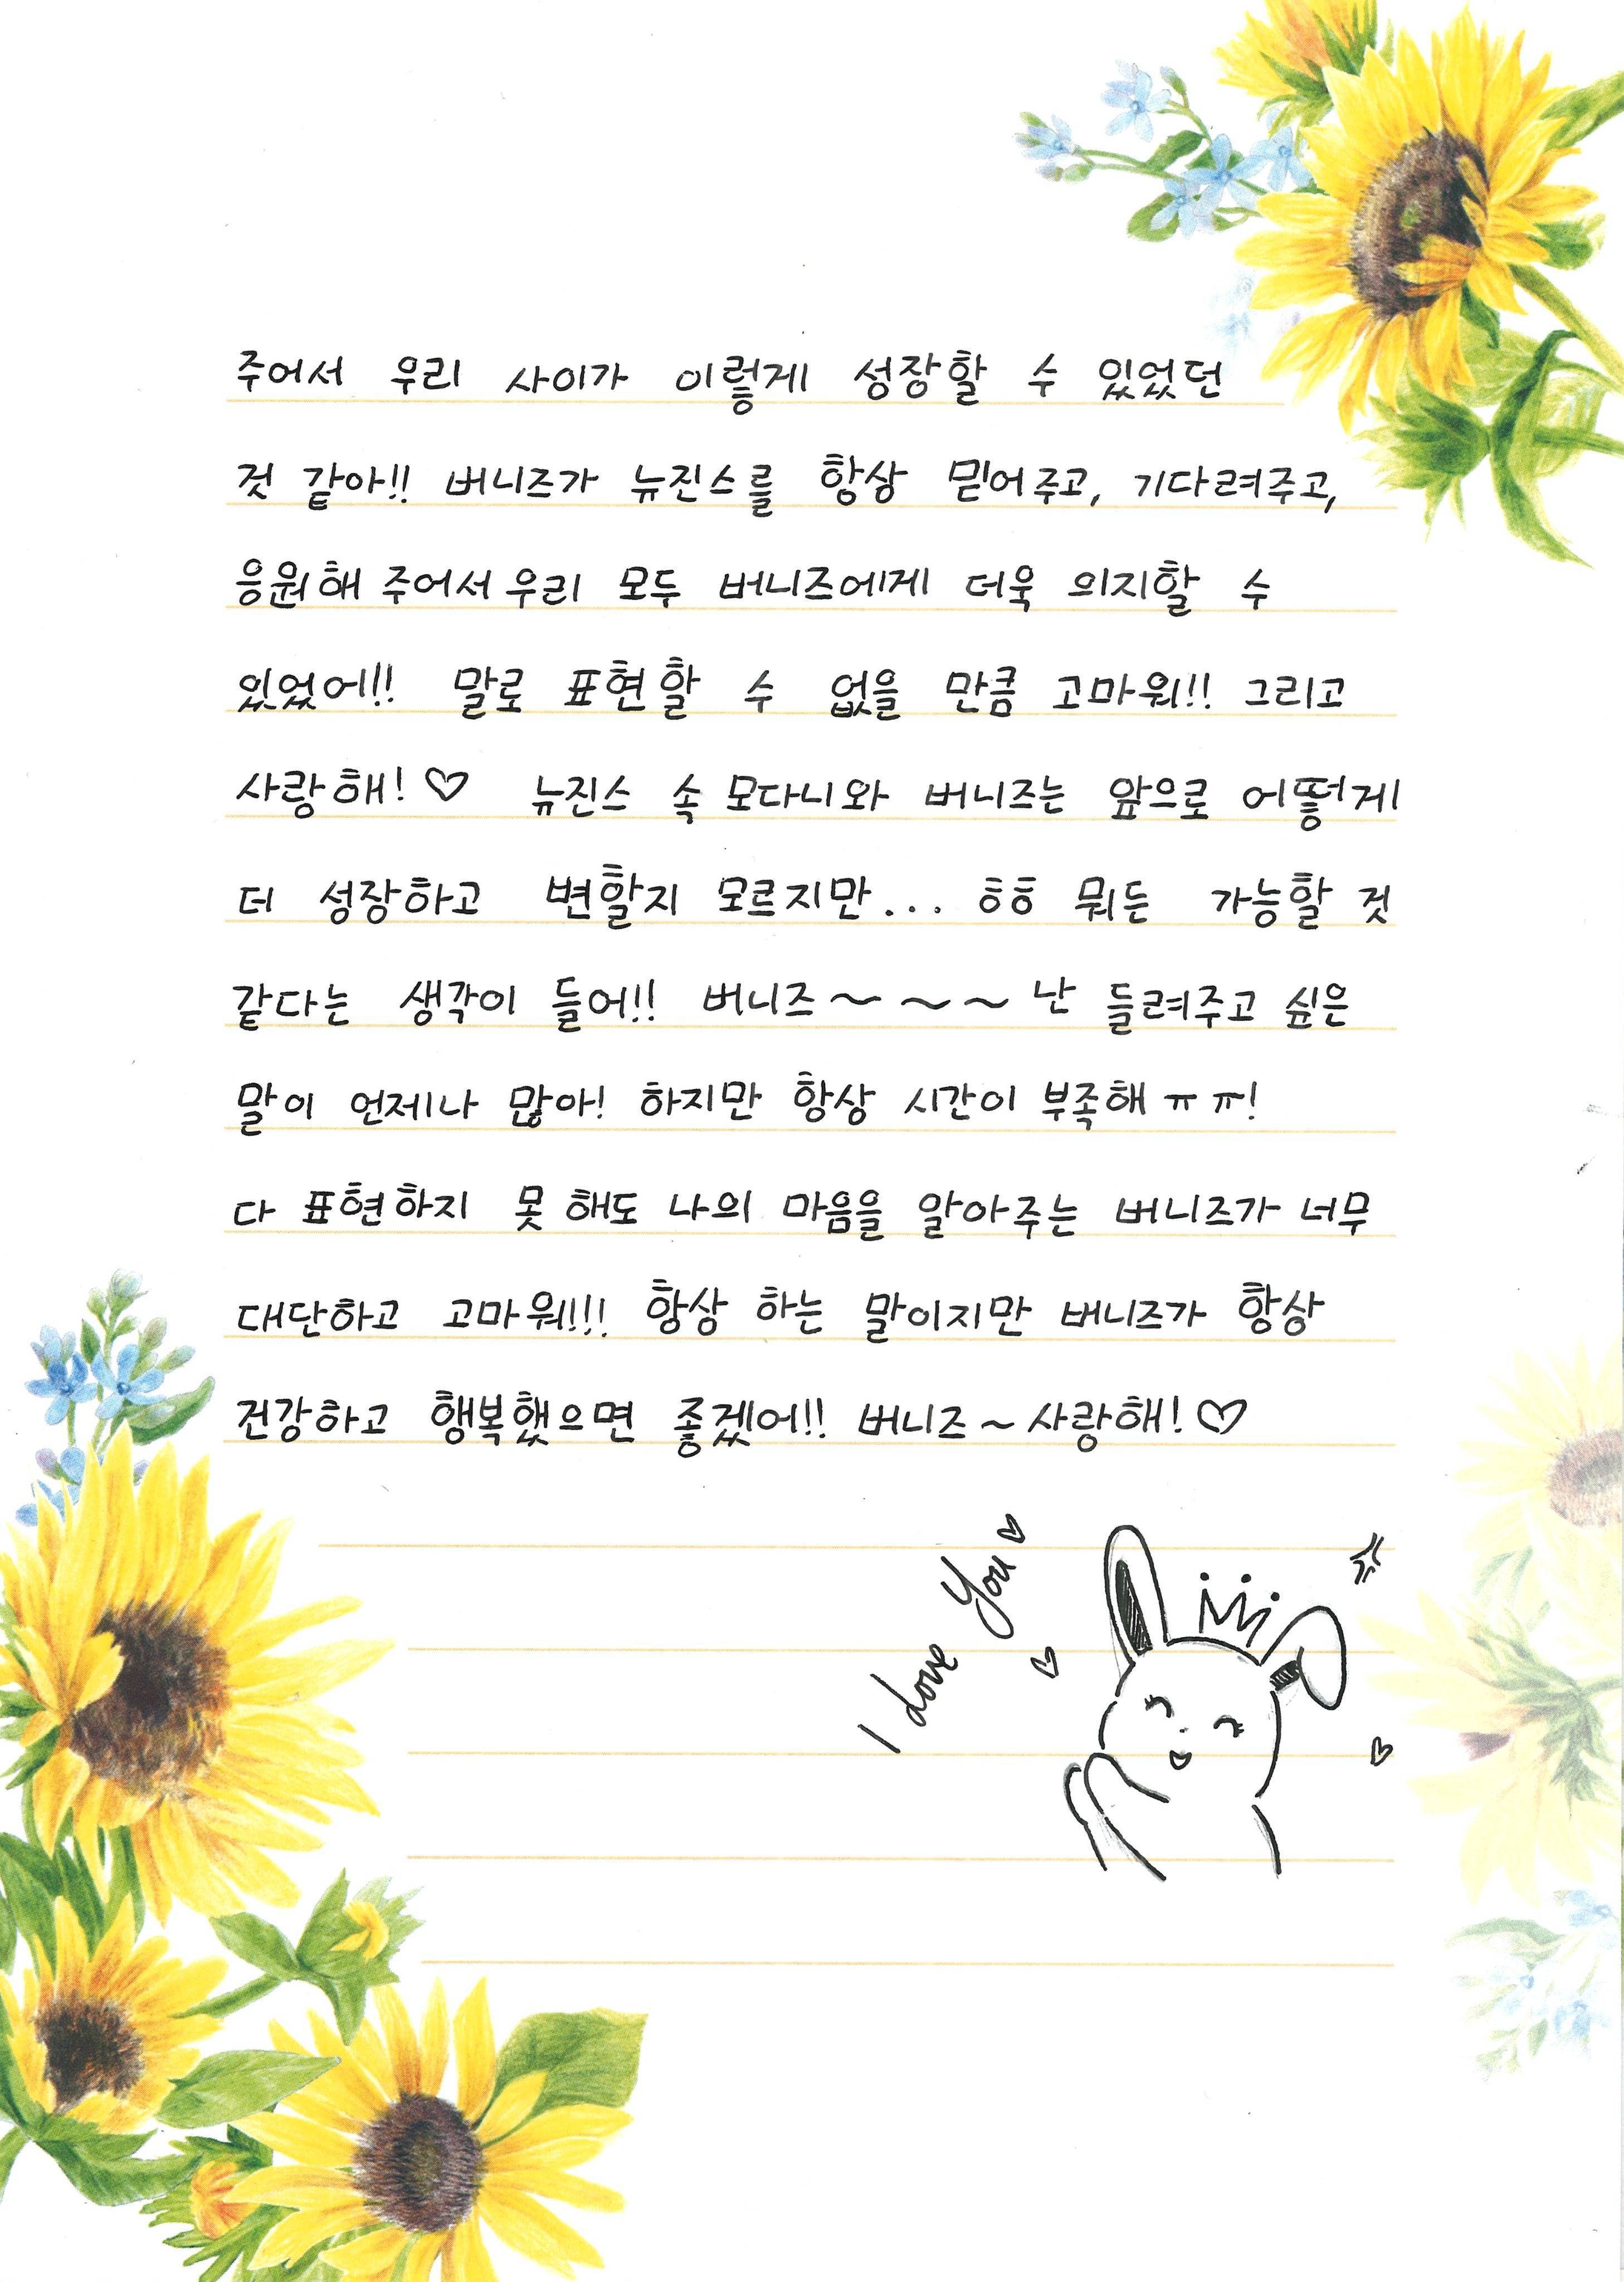 주어서 우리 사이가 이렇게 성장할 수 있었던
것 같아!! 버니즈가 뉴진스를 항상 믿어주고, 기다려주고,
응원해 주어서 우리 모두 버니즈에게 더욱 의지할 수
있었어!! 말로 표현할 수 없을 만큼 고마워!! 그리고
사랑해! ♡ 뉴진스 속 모다니와 버니즈는 앞으로 어떻게
더 성장하고 변할지 모르지만... ㅎㅎ 뭐든 가능할 것
같다는 생각이 들어!! 버니즈~~~~ 난 들려주고 싶은
말이 언제나 많아! 하지만 항상 시간이 부족해 ㅠㅠ!
다 표현하지 못 해도 나의 마음을 알아주는 버니즈가 너무
대단하고 고마워!!! 항상 하는 말이지만 버니즈가 항상
건강하고 행복했으면 좋겠어!! 버니즈~사랑해! ♡
I Love You♡